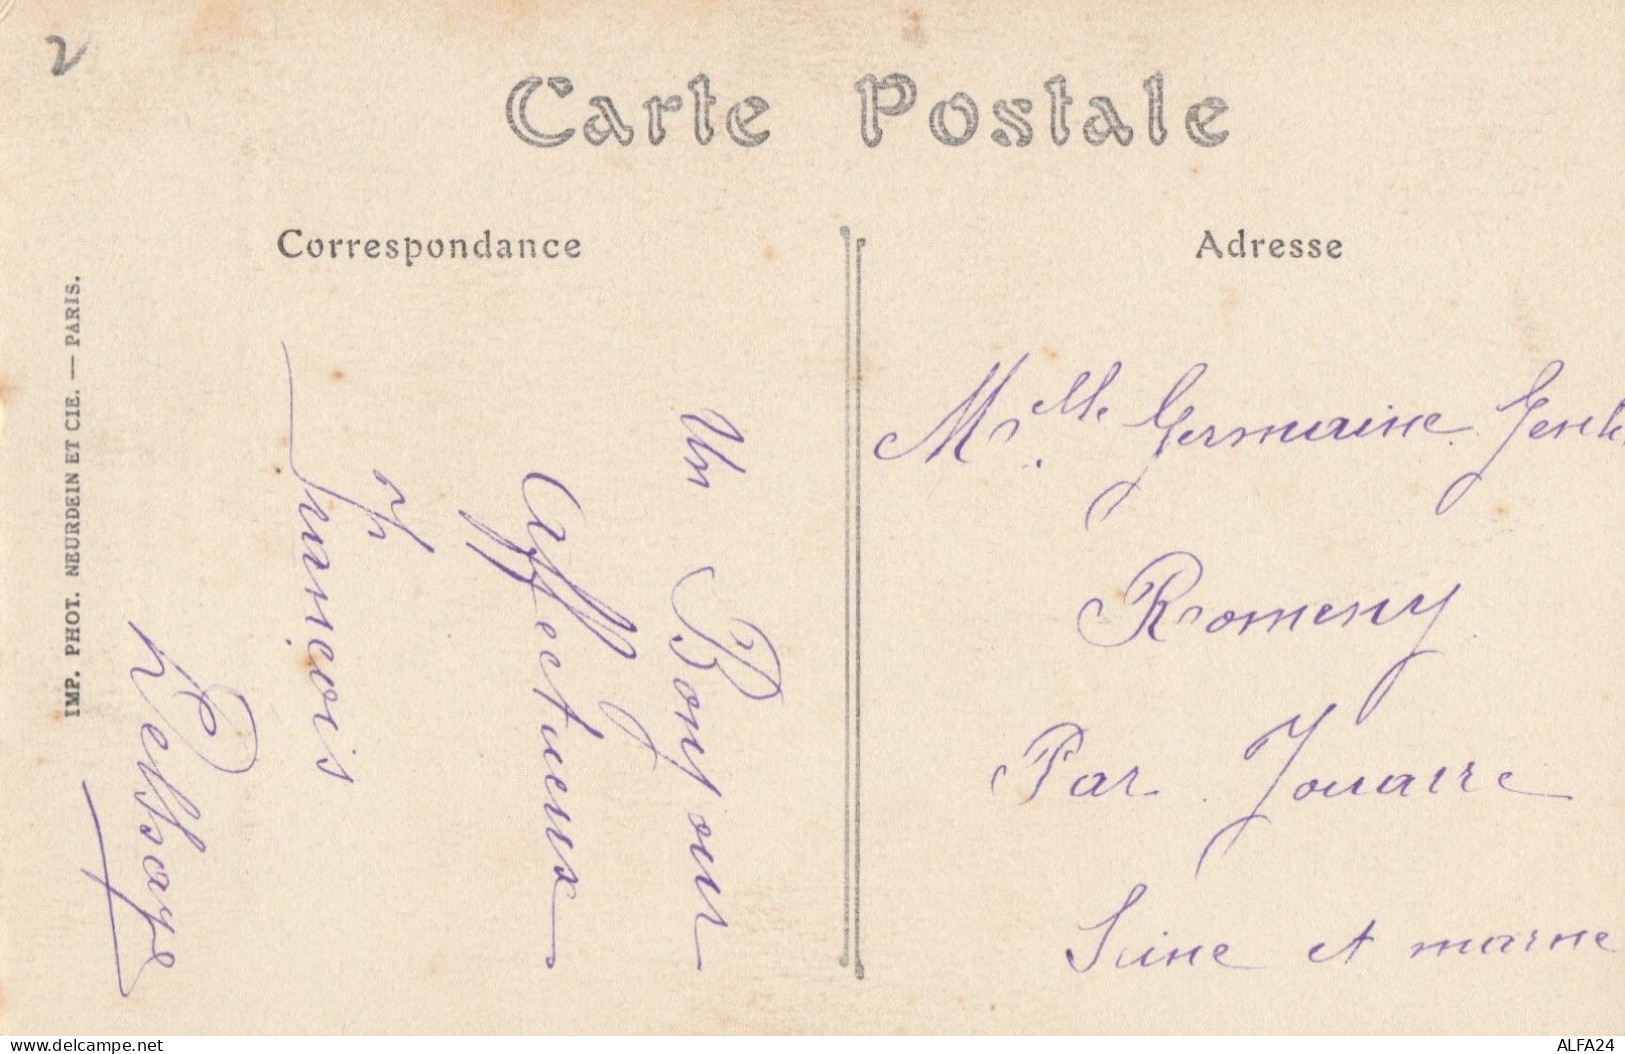 Carte Postale
Correspondance
Adresse
IMP. PHOT. NEURDEIN ET CIE. — PARIS.
Un Bonjour
Affectueux
François
Melle Germaine
Romeny
Par Jouarre
Seine et marne
delcampe.net
ALFA24